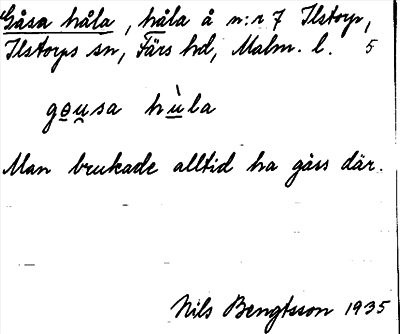 Gåsa håla, håla å n:r 7 Ilstorp,
Ilstorps sn, Färs hd, Malm. l. 5
go̲u̮sa hù̲la
Man brukade alltid ha gåss där.
Nils Bengtsson 1935